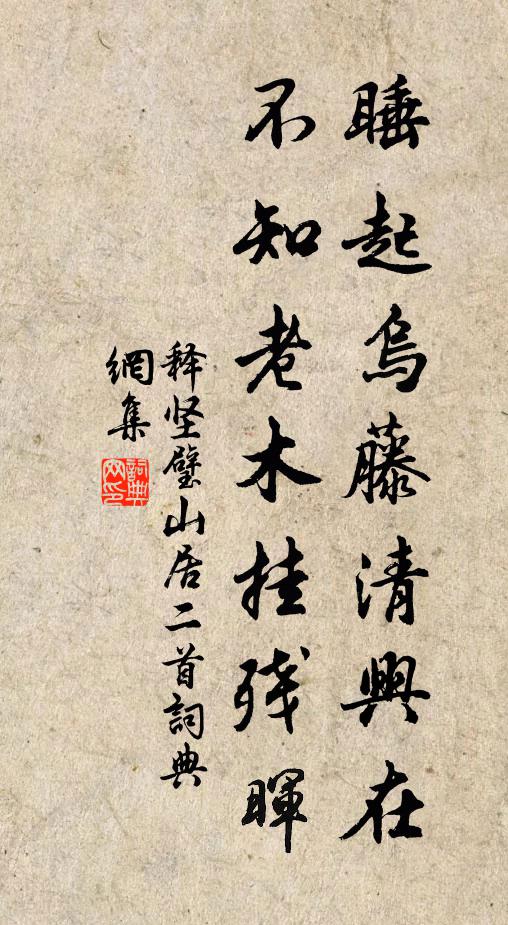 睡起烏藤清興在
不知老木挂残暉
释坚璧山居二首詞典
網集
詞典
网印